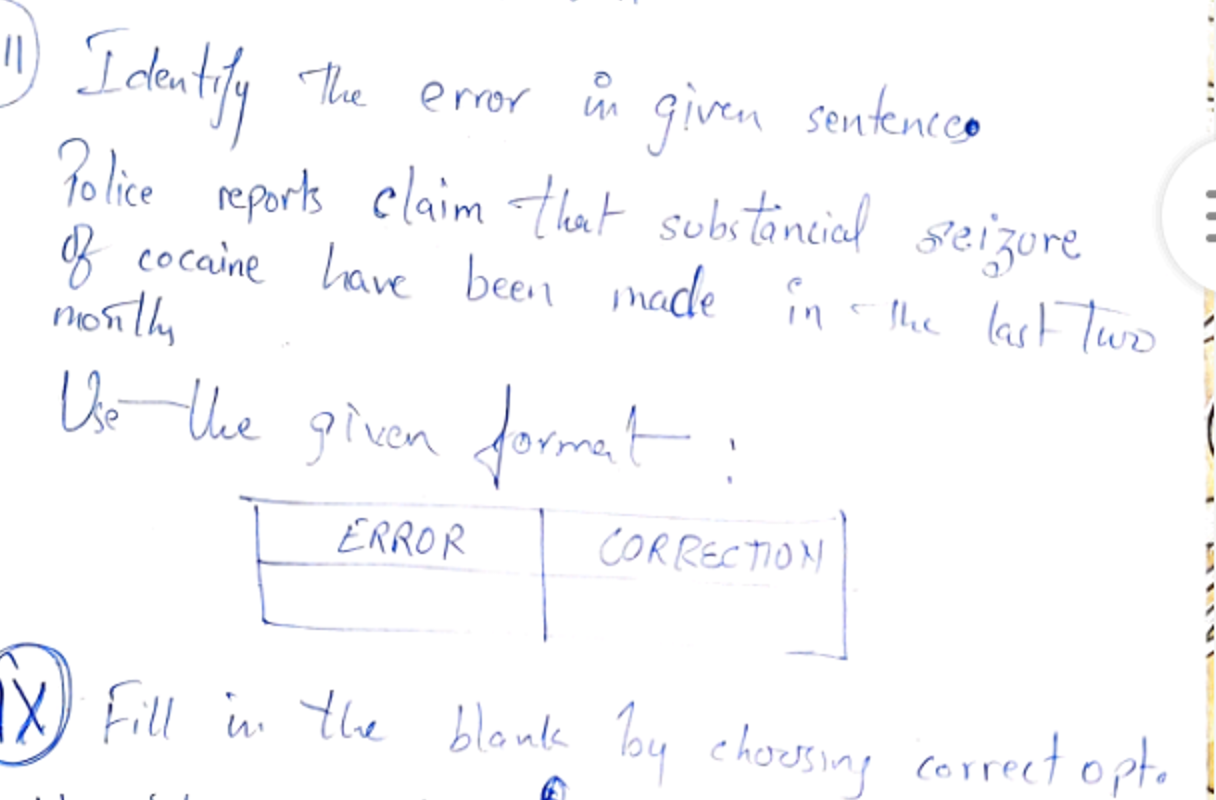 II) Identify the error in given sentence.
Police reports claim that substancial seizure
of cocaine have been made in the last two
months
Use the given format :
ERROR CORRECTION
IX) Fill in the blank by choosing correct opt.